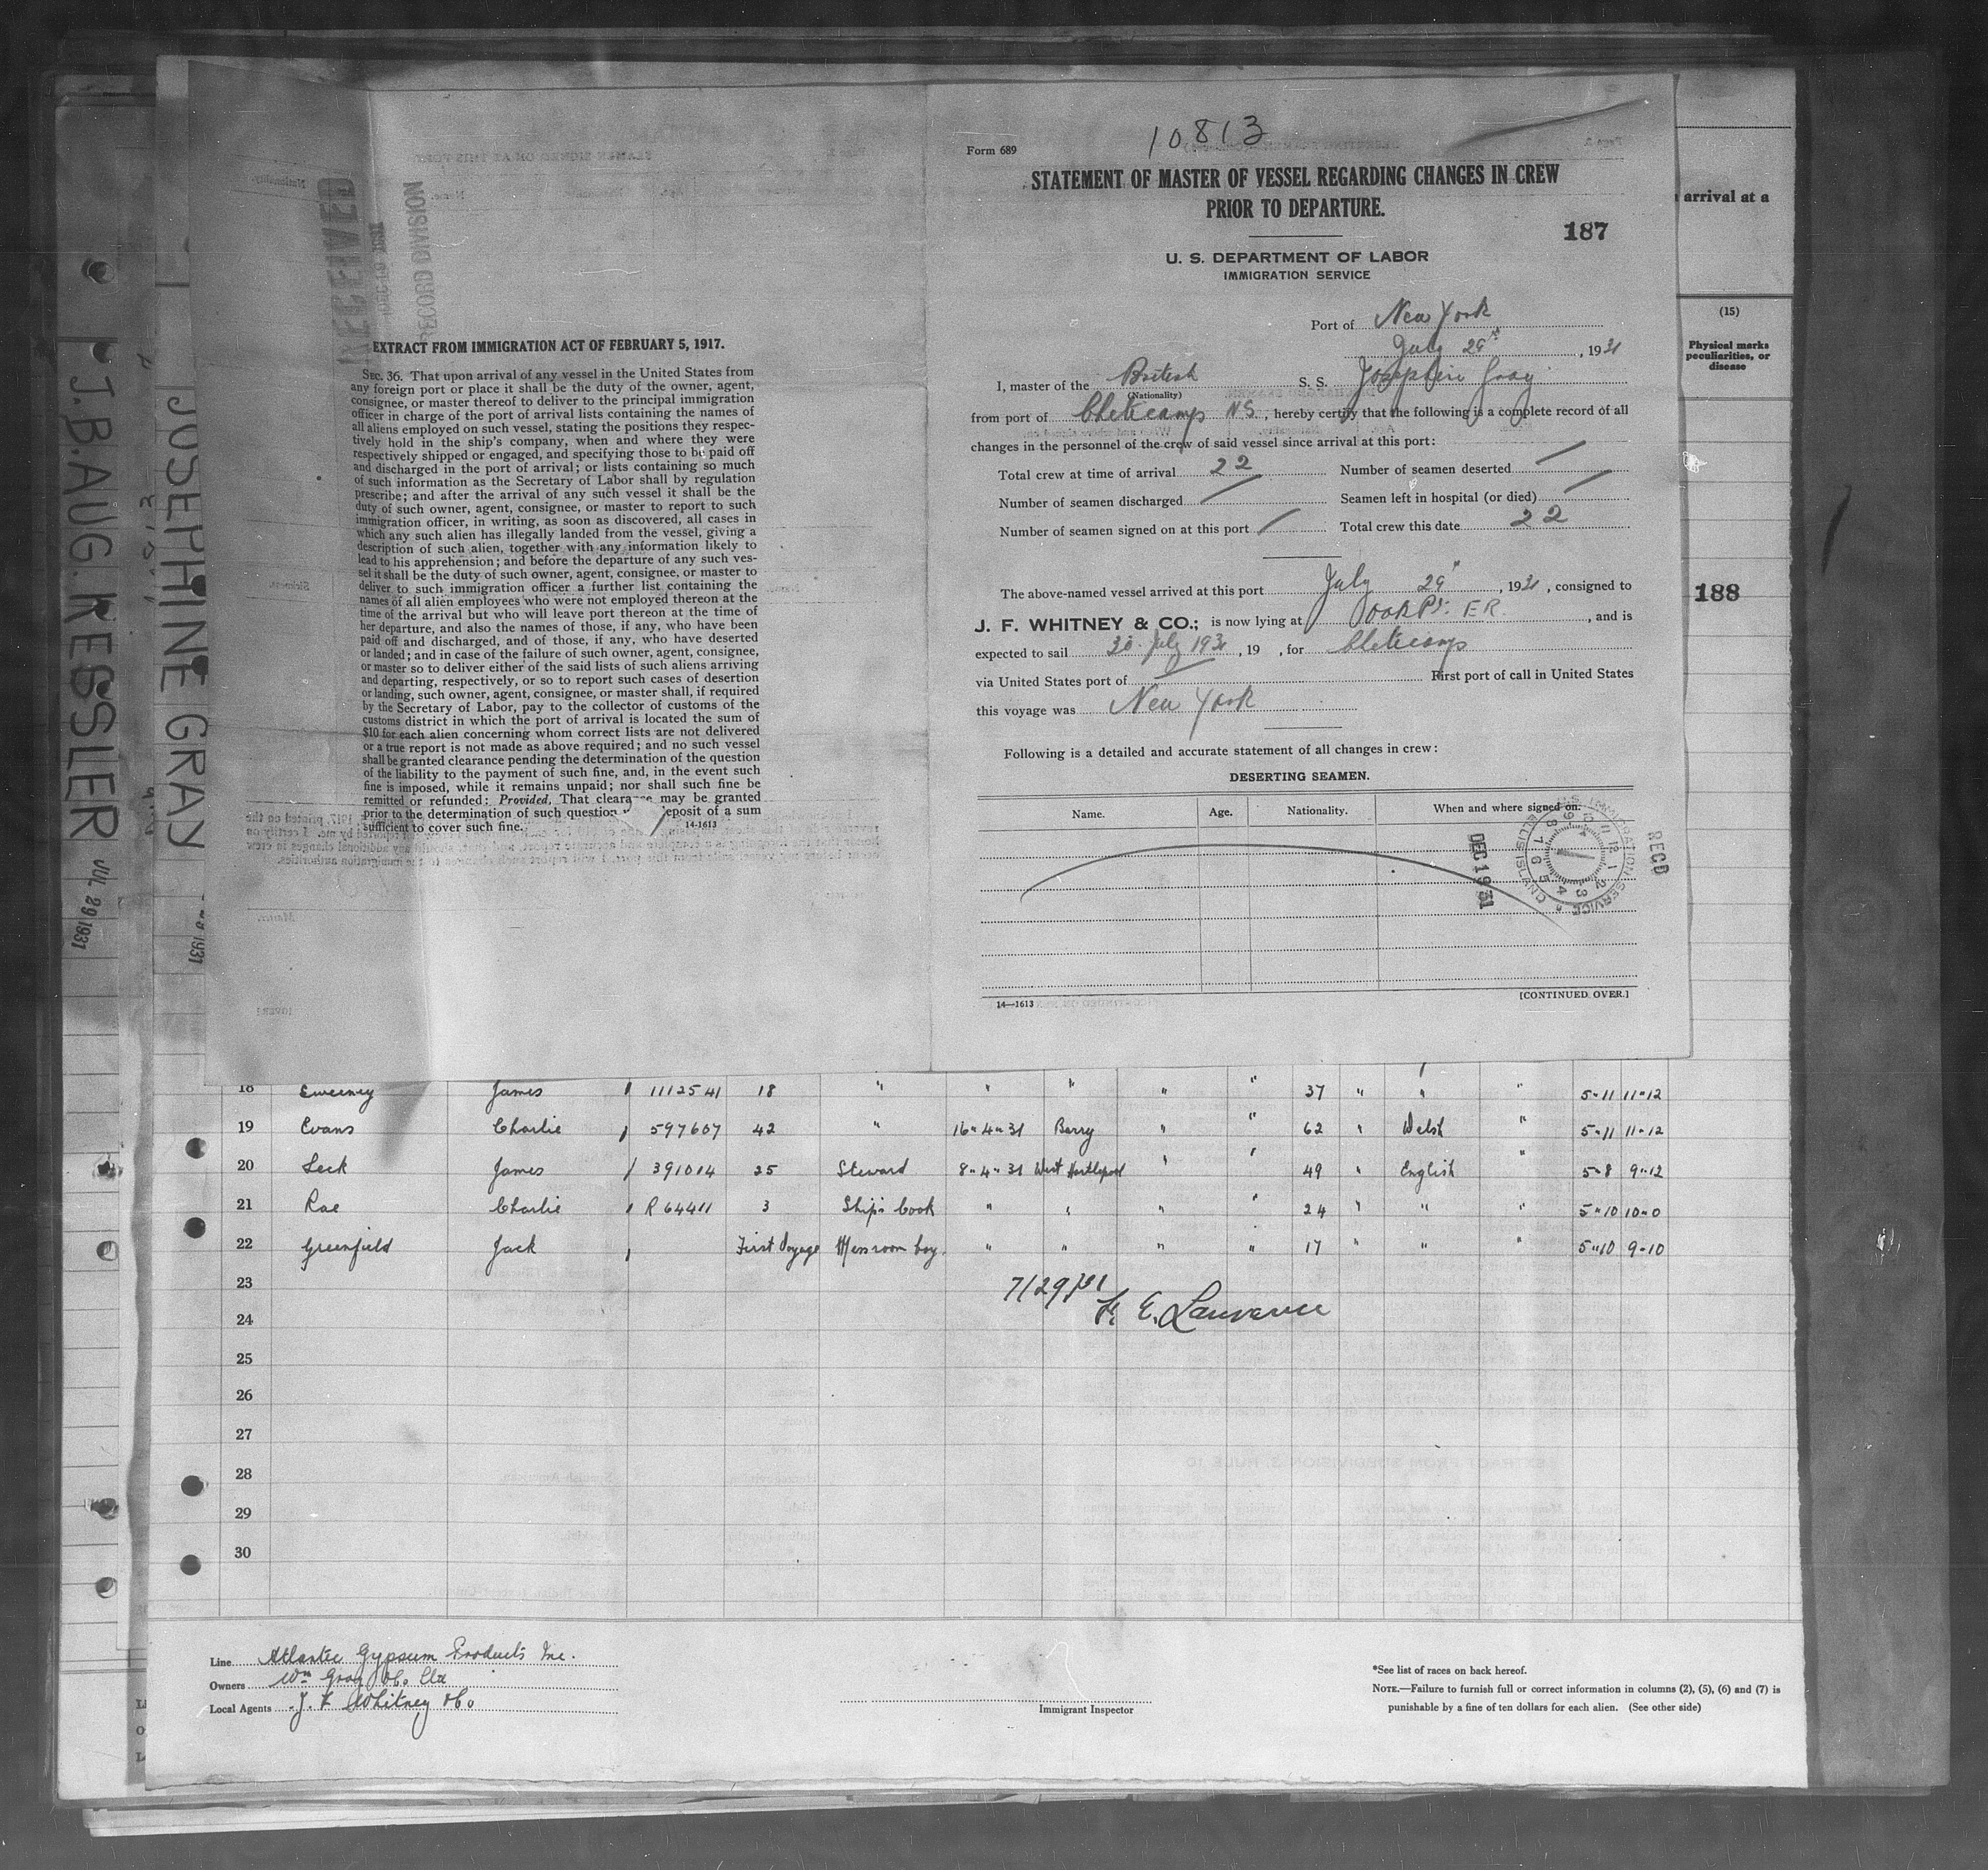 J. B. AUG. KESSLER JUL 29 1931
JOSEPHINE GRAY 1931
RECEIVED
RECORD DIVISION
EXTRACT FROM IMMIGRATION ACT OF FEBRUARY 5, 1917.
SEC. 36. That upon arrival of any vessel in the United States from
any foreign port or place it shall be the duty of the owner, agent,
consignee, or master thereof to deliver to the principal immigration
officer in charge of the port of arrival lists containing the names of
all aliens employed on such vessel, stating the positions they respec-
tively hold in the ship's company, when and where they were
respectively shipped or engaged, and specifying those to be paid off
and discharged in the port of arrival; or lists containing so much
of such information as the Secretary of Labor shall by regulation
prescribe; and after the arrival of any such vessel it shall be the
duty of such owner, agent, consignee, or master to report to such
immigration officer, in writing, as soon as discovered, all cases in
which any such alien has illegally landed from the vessel, giving a
description of such alien, together with any information likely to
lead to his apprehension; and before the departure of any such ves-
sel it shall be the duty of such owner, agent, consignee, or master to
deliver to such immigration officer a further list containing the
names of all alien employees who were not employed thereon at the
time of the arrival but who will leave port thereon at the time of
her departure, and also the names of those, if any, who have been
paid off and discharged, and of those, if any, who have deserted
or landed; and in case of the failure of such owner, agent, consignee,
or master so to deliver either of the said lists of such aliens arriving
and departing, respectively, or so to report such cases of desertion
or landing, such owner, agent, consignee, or master shall, if required
by the Secretary of Labor, pay to the collector of customs of the
customs district in which the port of arrival is located the sum of
$10 for each alien concerning whom correct lists are not delivered
or a true report is not made as above required; and no such vessel
shall be granted clearance pending the determination of the question
of the liability to the payment of such fine, and, in the event such
fine is imposed, while it remains unpaid; nor shall such fine be
remitted or refunded: Provided, That clearance may be granted
prior to the determination of such question deposit of a sum
sufficient to cover such fine. 14-1613
10813
Form 689
STATEMENT OF MASTER OF VESSEL REGARDING CHANGES IN CREW
PRIOR TO DEPARTURE.
187
U. S. DEPARTMENT OF LABOR
IMMIGRATION SERVICE
Port of New York
July 29th, 1931
I, master of the British S. S. Josephine Gray
(Nationality)
from port of Cheticamp NS, hereby certify that the following is a complete record of all
changes in the personnel of the crew of said vessel since arrival at this port:
Total crew at time of arrival 22 Number of seamen deserted /
Number of seamen discharged / Seamen left in hospital (or died) /
Number of seamen signed on at this port / Total crew this date 22
The above-named vessel arrived at this port July 29", 1931, consigned to
J. F. WHITNEY & CO.; is now lying at E R., and is
expected to sail 30 July 1931, 19 , for Cheticamp
via United States port of First port of call in United States
this voyage was New York
Following is a detailed and accurate statement of all changes in crew:
DESERTING SEAMEN.
Name. Age. Nationality. When and where signed on.
U.S. IMMIGRATION SERVICE ELLIS ISLAND
DEC 19 31
RECD
14—1613 [CONTINUED OVER.]
arrival at a
(15)
Physical marks
peculiarities, or
disease
188
18 Sweeney James 1112541 18 " " " " " 37 " " " 5-11 11-12
19 Evans Charlie 597607 42 " 16-4-31 Barry " " 62 " Welsh " 5-11 11-12
20 Leck James 391014 25 Steward 8-4-31 West Hartlepool " " 49 " English " 5-8 9-12
21 Rae Charlie R 64411 3 Ship's Cook " " " " 24 " " " 5-10 10-0
22 Greenfield Jack First Voyage Messroom boy. " " " " 17 " " " 5-10 9-10
23
7/29/31
24
25
26
27
28
29
30
Line Atlantic Gypsum Products Inc.
Owners Wm Gray & Co. Ltd
Local Agents J. F. Whitney & Co
Immigrant Inspector
*See list of races on back hereof.
NOTE.—Failure to furnish full or correct information in columns (2), (5), (6) and (7) is
punishable by a fine of ten dollars for each alien. (See other side)